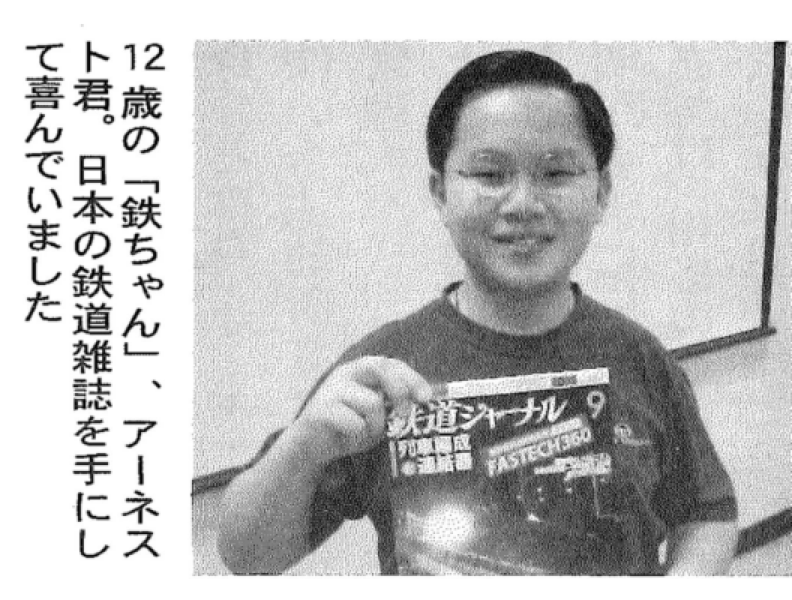 12歳の「鉄ちゃん」、アーネス
ト君。日本の鉄道雑誌を手にし
て喜んでいました
鉄道ジャーナル 9
列車編成
連結器
FASTECH360